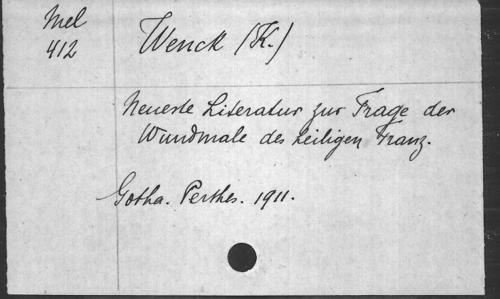 Mel
412
Wenck (K.)
Neueste Literatur zur Frage der
Wundmale des heiligen Franz.
Gotha. Perthes. 1911.